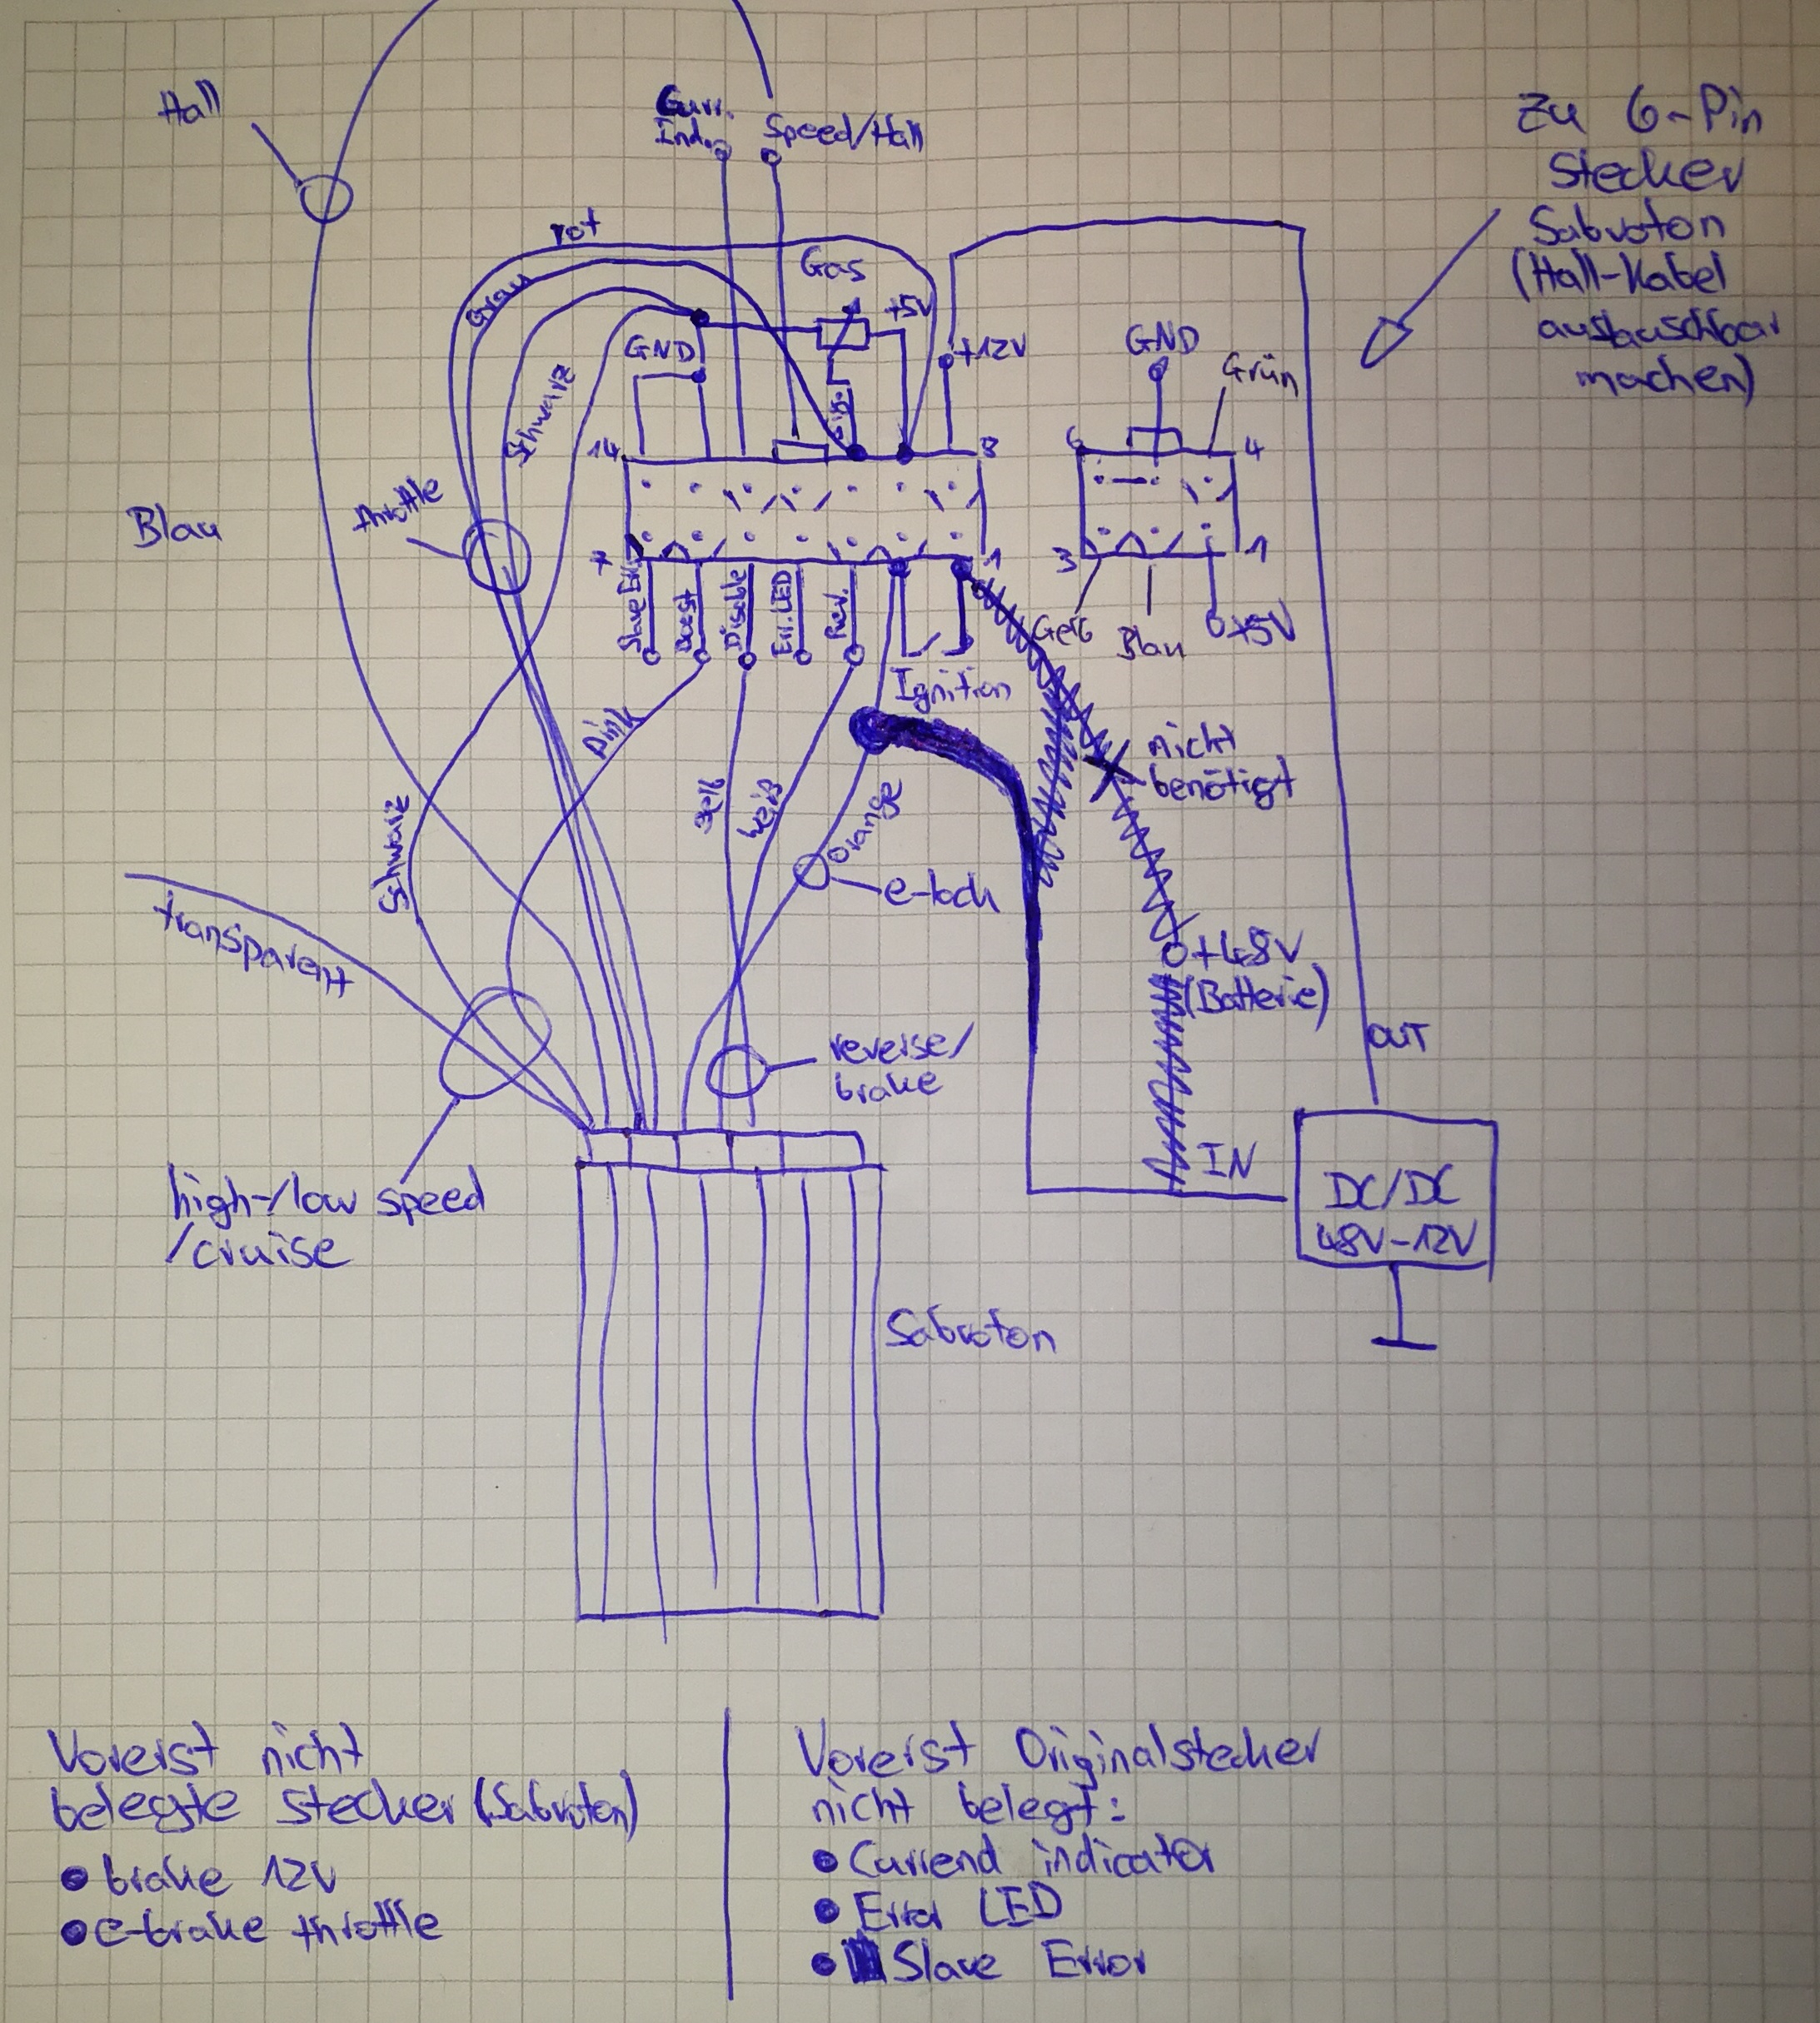 Hall
Curr.
Ind.
Speed/Hall
Zu 6-Pin
Stecker
Sabvoton
(Hall-Kabel
austauschbar
machen)
rot
Grau
Gas
+5V
GND
+12V
GND
Grün
Schwarz
Sig.
14
8
6
4
throttle
Blau
7
1
3
1
Slave Err.
Boost
Disable
Err. LED
Rev.
Ignition
Gelb
Blau
+5V
pink
gelb
weiß
orange
nicht
benötigt
Schwarz
e-lock
transparent
+48V
(Batterie)
OUT
reverse/
brake
IN
high-/low speed
/cruise
DC/DC
48V-12V
Sabvoton
Vorerst nicht
belegte Stecker (Sabvoton)
• brake 12V
• e-brake throttle
Vorerst Originalstecker
nicht belegt:
• Currend indicator
• Error LED
• Slave Error